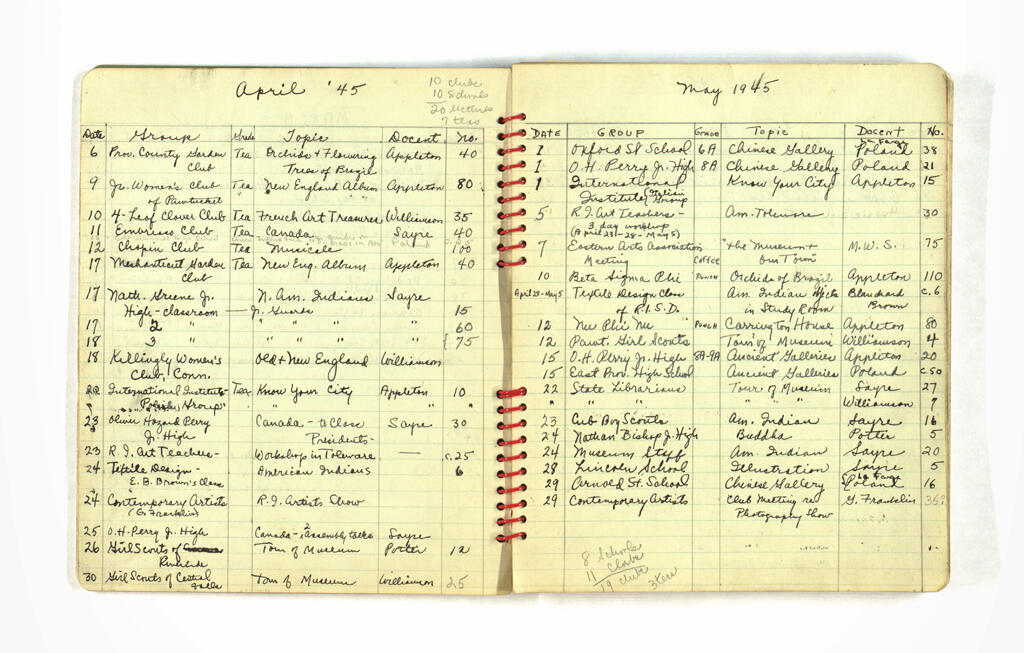 April '45
10 clubs
10 Schools
20 lectures
7 teas
Date Group Grade Topic Docent No.
6 Prov. County Garden Tea Orchids & Flowering Appleton 40
Club Trees of Brazil
9 Jr. Women's Club Tea New England Album Appleton 80
of Pawtucket
10 4-Leaf Clover Club Tea French Art Treasures Williamson 35
11 Embrisso Club Tea Canada Sayre 40
12 Chopin Club Musicale 100
17 Meshanticut Garden Tea New Eng. Album Appleton 40
Club
17 Nath. Greene Jr. N. Am. Indians Sayre
High - classroom — Jr. Guards 15
17 2 " " " " " 60
18 3 " " " " " 75
18 Killingly Women's Old & New England Williamson
Club, Conn.
22 International Institute Tea Know Your City Appleton 10
" "Polish Group" " "
23 Oliver Hazard Perry Canada - to Class Sayre 30
Jr. High Presidents -
23 R.I. Art Teachers - Workshop in Toleware — c. 25
24 Textile Design - American Indians 6
E.B. Brown's Class
24 Contemporary Artists R.I. Artists Show
(G. Franklin)
25 O.H. Perry Jr. High Canada - 2 Assembly talks Sayre
26 Girl Scouts of Tour of Museum Potter 12
30 Girl Scouts of Central Tour of Museum Williamson 25
Falls
May 1945
DATE GROUP GRADE Topic Docent No.
1 Oxford St School 6A Chinese Gallery Poland 38
1 O.H. Perry Jr. High 8A Chinese Gallery Poland 21
1 International Know Your City Appleton 15
Institute (Italian Group
5 R.I. Art Teachers - Am. Toleware 30
3 day workshop
(April 23 - 28 - May 5)
7 Eastern Arts Association "The Museum & M.W.S. 75
Meeting Coffee Our Town"
10 Beta Sigma Phi Punch Orchids of Brazil Appleton 110
April 23 - May 5 Textile Design Class Am. Indian Objects Blanchard c. 6
of R.I.S.D. in Study Room Brown
12 Nu Phi Nu Punch Carrington House Appleton 80
12 Pawt. Girl Scouts Tour of Museum Williamson 4
15 O.H. Perry Jr. High 8A-9A Ancient Galleries Appleton 20
15 East Prov. High School Ancient Galleries Poland c 50
22 State Librarians Tour of Museum Sayre 27
" " " " " Williamson 9
23 Cub Boy Scouts Am. Indian Sayre 16
24 Nathan Bishop J. High Buddha Potter 5
24 Museum Staff Am. Indian Sayre 20
28 Lincoln School Illustration Sayre 5
29 Arnold St. School Chinese Gallery Poland 16
29 Contemporary Artists Club Meeting re G. Franklin 35?
Photography Show
8 Schools
11 Clubs
19
3 teas